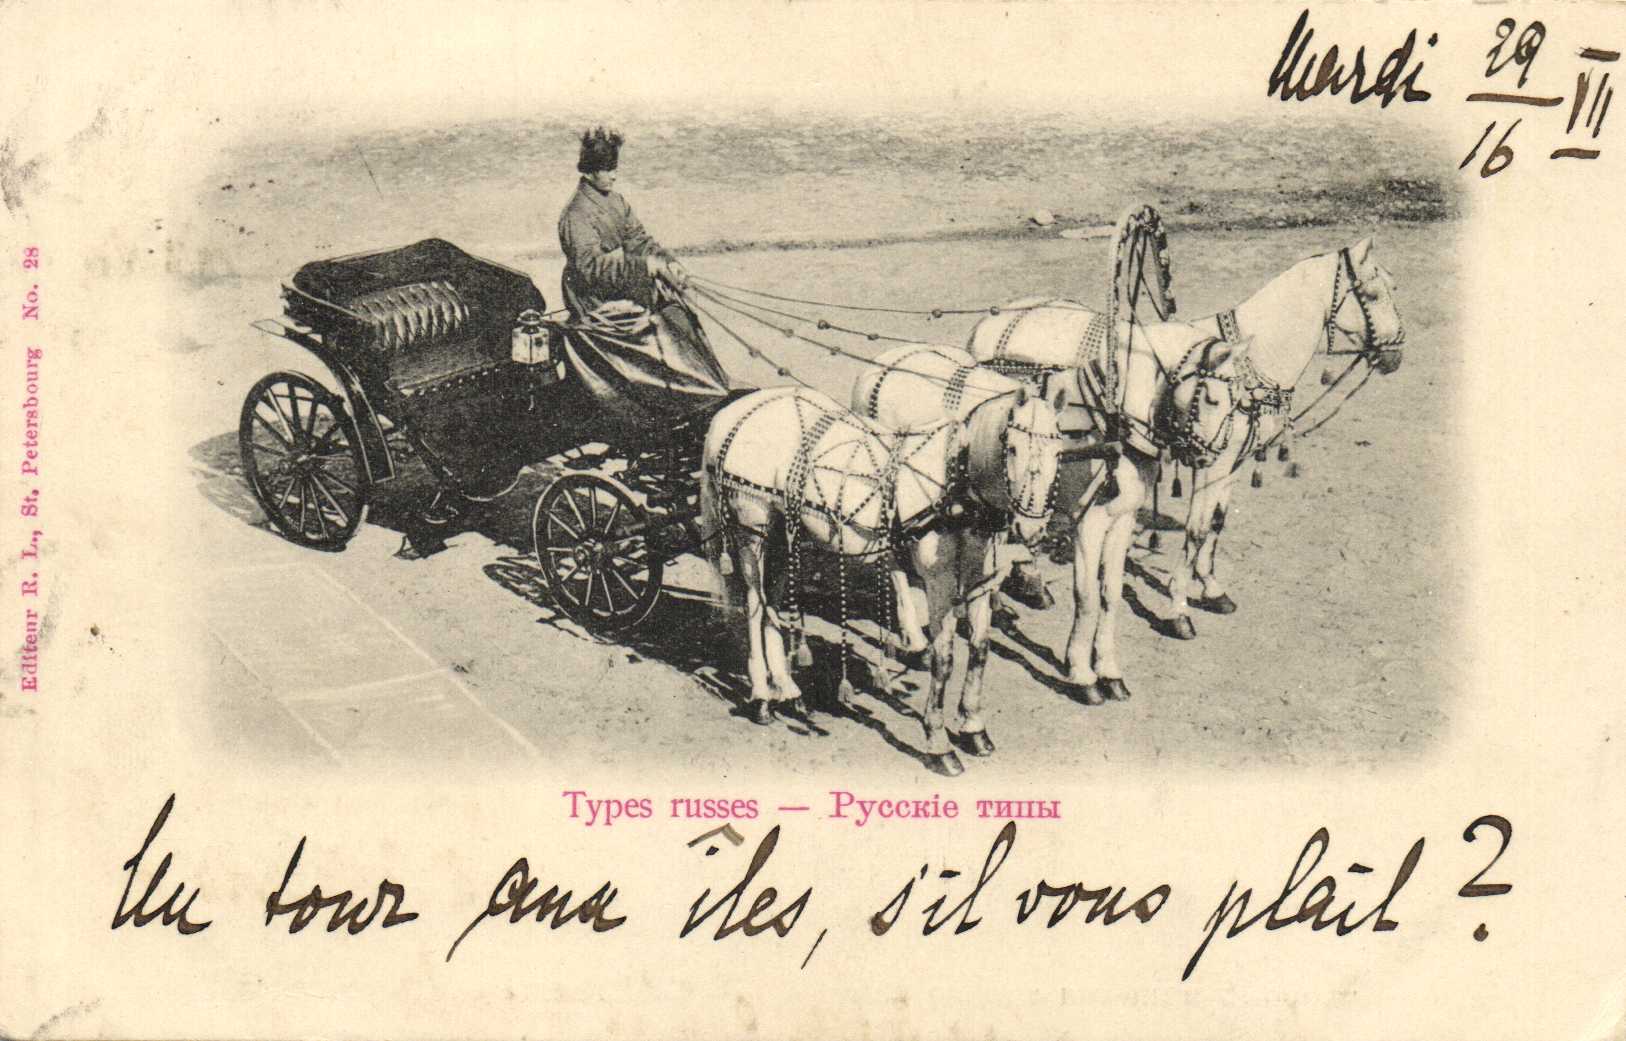 Mardi 29/16 VII
Editeur R. L., St. Petersbourg No. 28
Types russes — Русскіе типы
Un tour aux îles, s'il vous plaît ?